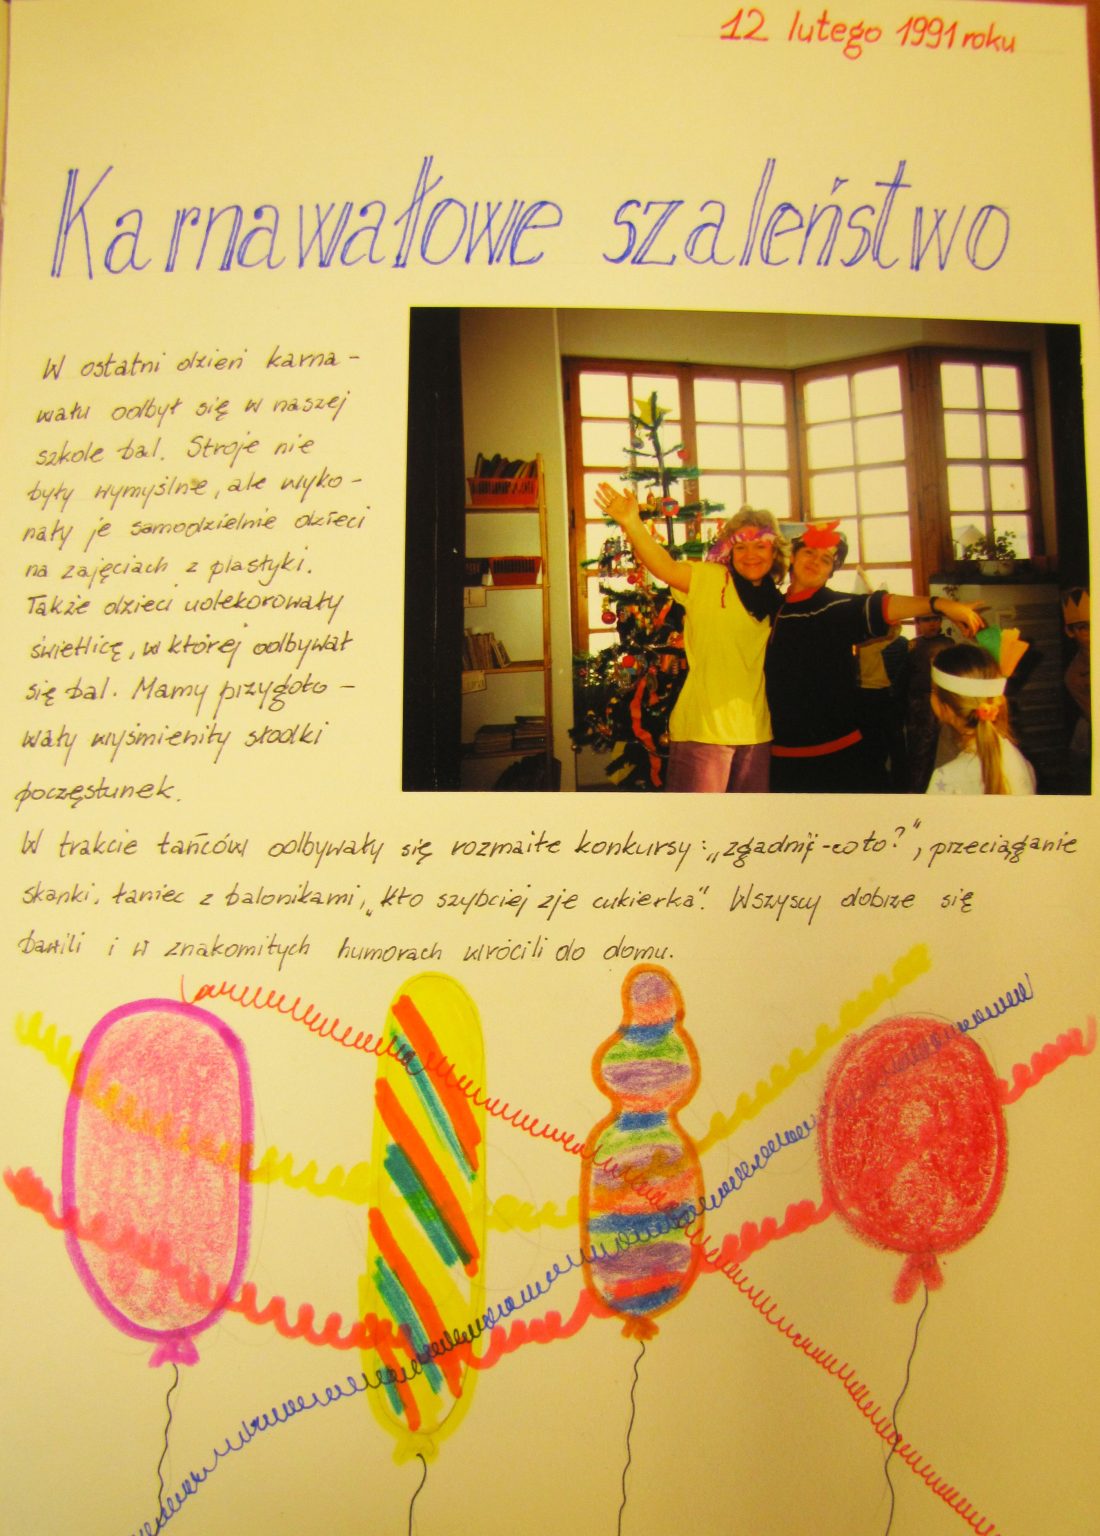 12 lutego 1991 roku
Karnawałowe szaleństwo
W ostatni dzień karna-
wału odbył się w naszej
szkole bal. Stroje nie
były wymyślne, ale wyko-
nały je samodzielnie dzieci
na zajęciach z plastyki.
Także dzieci udekorowały
świetlicę, w której odbywał
się bal. Mamy przygoto-
wały wyśmienity słodki
poczęstunek.
W trakcie tańców odbywały się rozmaite konkursy: „zgadnij-co to?", przeciąganie
skanki, taniec z balonikami, „kto szybciej zje cukierka". Wszyscy dobrze się
bawili i w znakomitych humorach wrócili do domu.